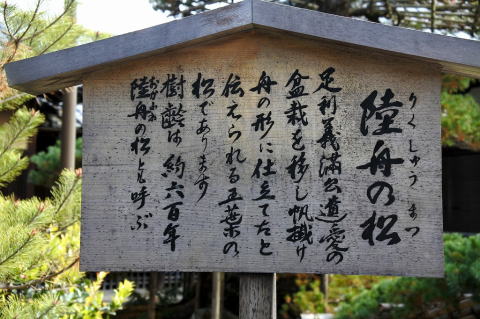 りくしゅう まつ
陸舟の松
足利義満公遺愛の
盆栽を移し帆掛け
舟の形に仕立てたと
伝えられる五葉の
松であります
樹齢は約六百年
陸舟の松とも呼ぶ